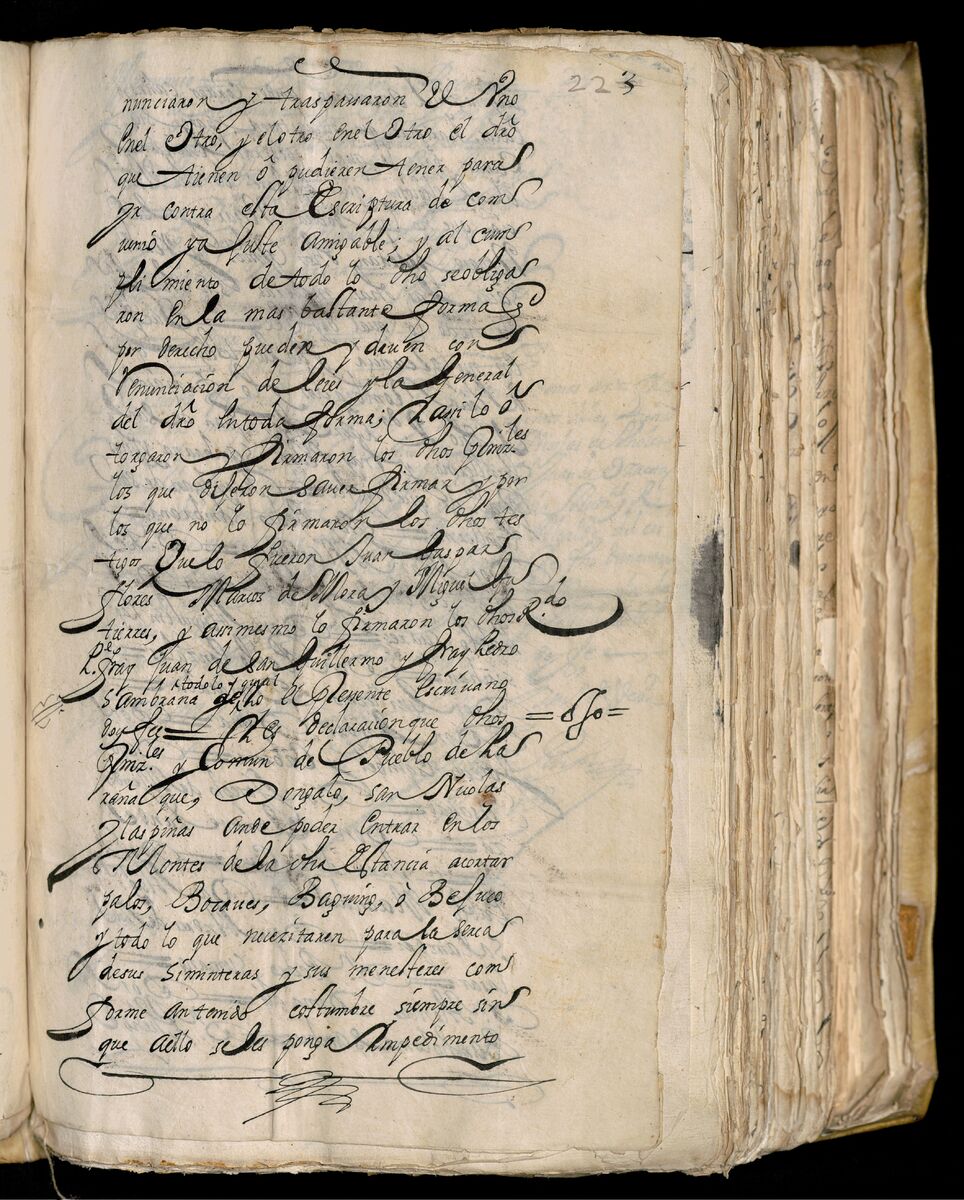 223
nunciaron y traspasaron el Vno
enel otro, y el otro enel otro el dr̃o
que tienen o pudieren tener para
yr contra esta Escriptura de com
ssio y ajuste amigable; y al cum
plimiento de todo lo dho se obliga
ron en la mas bastante forma q̃
por derecho pueden y deuen con
renunciacion de leies y la general
del dr̃o entoda forma; y asi lo o
torgaron y firmaron los dhos Prinz.les
los que dijeron sauer firmar y por
los que no lo firmaron los dhos tes
tigos que lo fueron Juan Gaspar
flores Marcos de Mora y Miguel Gu
tierres, y asimesmo lo firmaron los dhos R.do
P.e fray Juan de San Guillermo y fray Pedro
todo lo qual
Sambrana el Presente escriuano
doy fee = Y es declaracion que dhos = dho =
Prinz.les y Comun de Pueblo de Pa
rañaque, Don Galo, san Nicolas
y las piñas an de poder entrar en los
Montes de la dha Estancia a cortar
palos, Bocaues, Baguing, ò Besuco
y todo lo que necezitaren para la serca
de sus siminteras y sus menesteres com
forme an tenido costumbre siempre sin
que a ello se les ponga Ympedimento